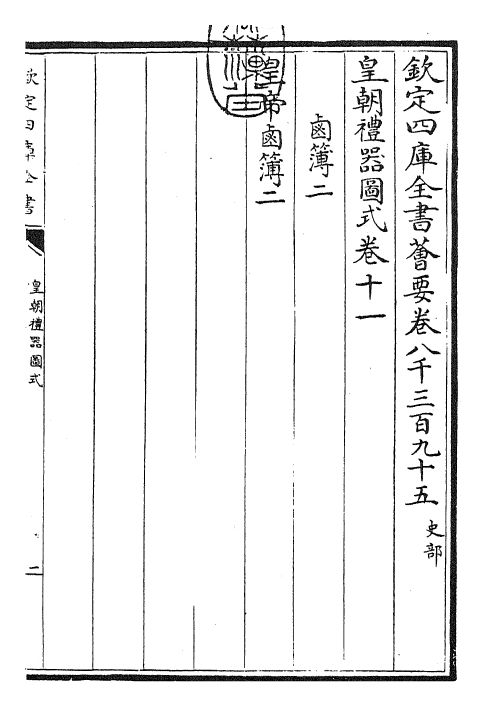 欽定四庫全書薈要卷八千三百九十五 史部
皇朝禮器圖式卷十一
鹵簿二
皇帝鹵簿二
欽定四庫全書
皇朝禮器圖式